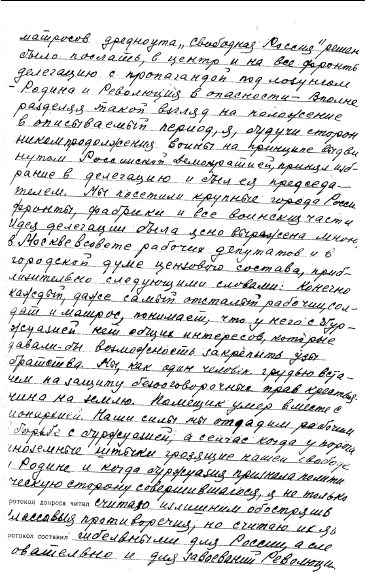 матросов дредноута „Свободная Россия" решен
было послать, в центр и на все фронты
делегацию с пропагандой под лозунгом
- Родина и Революция в опасности - Вполне
разделяя такой взгляд на положение
в описываемый период, я, будучи сторон
ником продолжения войны на принципе выдви
нутом Российской Демократией, принял изб-
рание в делегацию и был ея председа-
телем. Мы посетили крупные города России
фронты, фабрики и все воинския части
Идея делегации была ясно выражена мною,
в Москве в совете рабочих депутатов и в
городской думе цензового состава, приб-
лизительно следующими словами: Конечно
каждый, даже самый отсталый рабочий, сол-
дат и матрос, понимает, что у него с бур-
жуазией нет общих интересов, которые
давали-бы возможность закрепить узы
братства. Мы, как один человек грудью вста-
нем на защиту безоговорочных прав крестья-
нина на землю. Помещик умер вместе с
монархией. Наши силы мы отдадим рабочим
в борьбе с буржуазией, а сейчас когда у порога
иноземные штыки грозящие нашей свободе
и Родине и когда буржуазия признала полити
ческую сторону совершившегося, я не только
ротокол допроса читал считаю излишним обострять
классовыя противоречия, но считаю их
ротокол составил гибельными для России, а сле
овательно и для завоеваний Революци